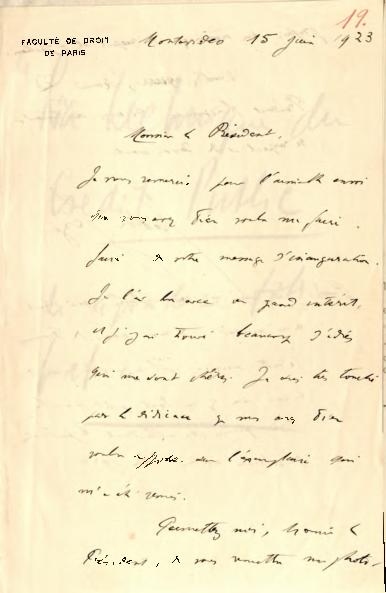 19.
FACULTÉ DE DROIT
DE PARIS
Montevideo 15 juin 1923
Monsieur le Président,
Je vous remercie pour l'aimable envoi
que vous avez bien voulu me faire
faire de votre message d'inauguration.
Je l'ai lu avec un grand intérêt,
et j'y ai trouvé beaucoup d'idées
qui me sont chères. Je suis très touché
par la dédicace que vous avez bien
voulu apposer sur l'exemplaire qui
m'a été remis.
Permettez moi, Monsieur le
Président, de vous remettre ma photo-